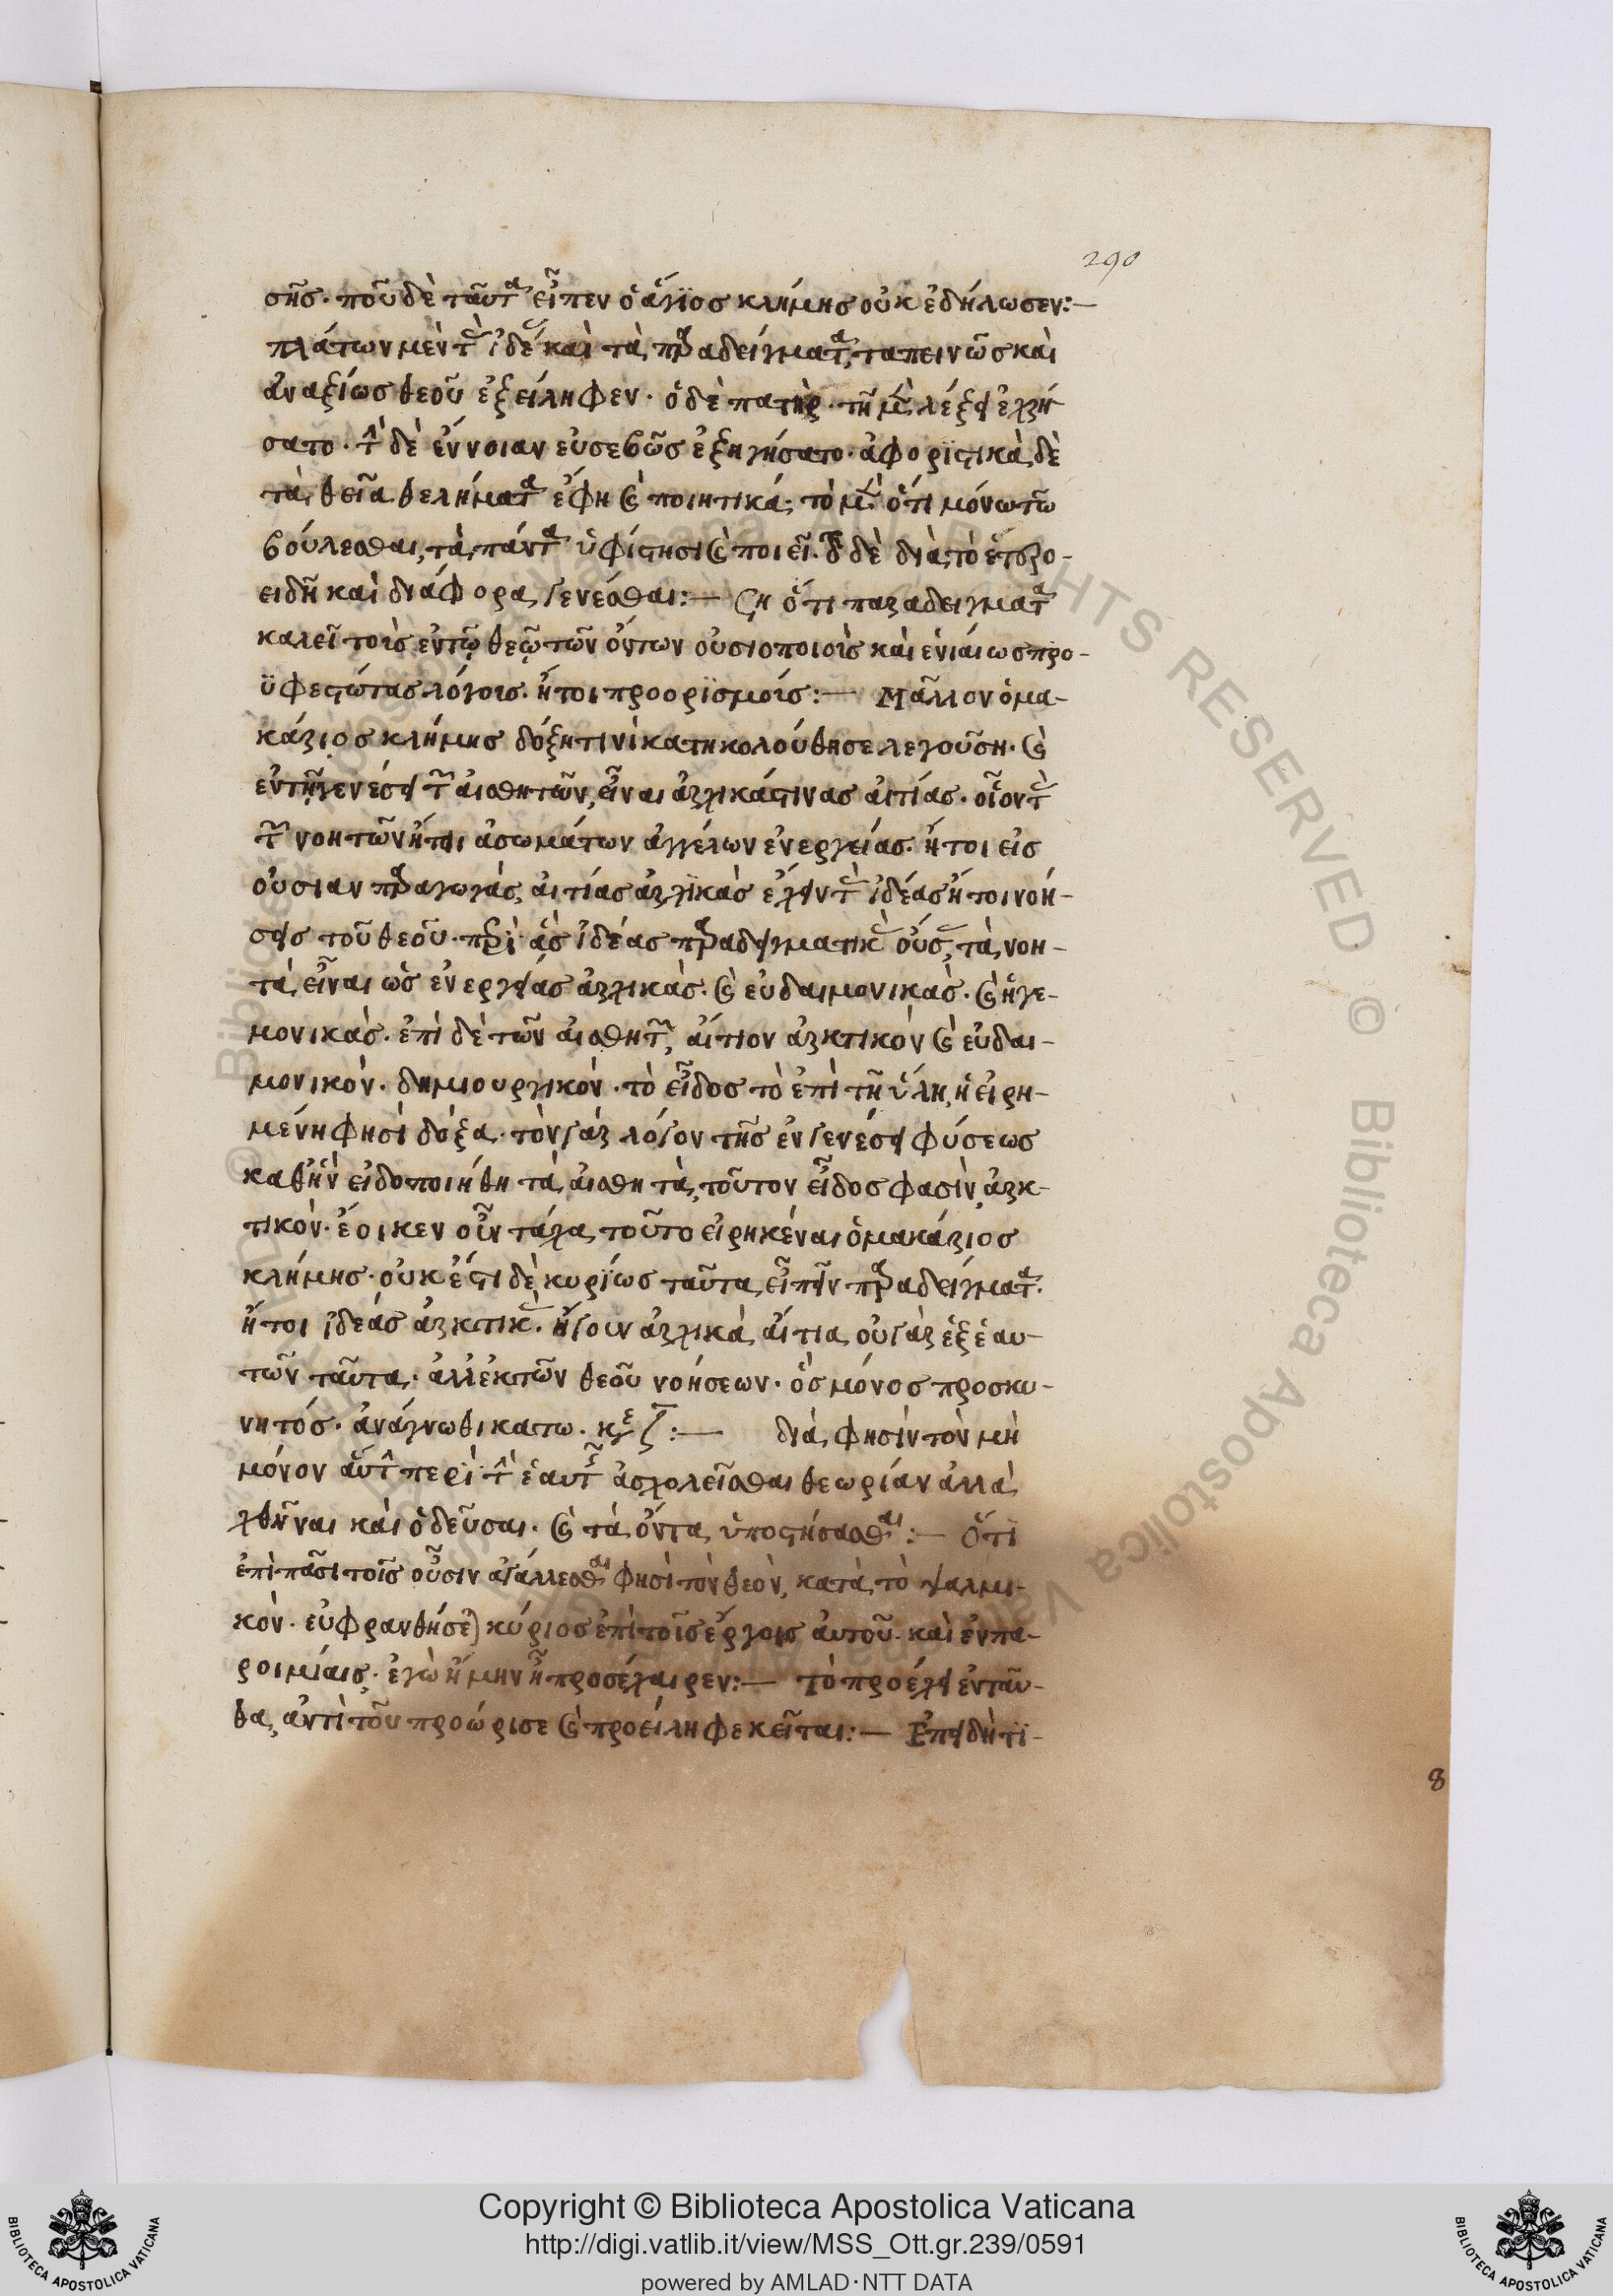 290
σῆς· ποῦ δὲ ταῦτα εἶπεν ὁ ἅγϊος κλήμης οὐκ ἐδήλωσεν:—
πλάτων μὲν τὰς ἰδέας καὶ τὰ πραδείγματα, ταπεινῶς καὶ
ἀναξίως θεοῦ ἐξείληφεν· ὁ δὲ πατὴρ· τῇ μὲν λέξει ἐχρή
σατο· τὴν δὲ ἔννοιαν εὐσεβῶς ἐξηγήσατο· ἀφορϊστικὰ δὲ
τὰ θεῖα θελήματα ἔφη καὶ ποιητικά· τὸ μὲν ὅτι μόνω τῶ
βούλεσθαι, τὰ πάντα ὑφίστησι καὶ ποιεῖ. τὸ δὲ διὰ τὸ ἑτερο-
ειδῆ καὶ διάφορα γενέσθαι:— ση ὅτι παραδειγματα
καλεῖ τοὺς ἐν τῷ θεῷ τῶν ὄντων οὐσιοποιοὺς καὶ ἑνιαίως προ-
ϋφεστώτας λόγους· ἤτοι προορϊσμούς:— Μᾶλλον ὁ μα-
κάριος κλήμης δόξη τινὶ κατηκολούθησε λεγούση· καὶ
ἐν τῇ γενέσει τῶν αἰσθητῶν, εἶναι ἀρχικάς τινας αἰτίας· οἷον τὰς
τῶν νοητῶν ἤτοι ἀσωμάτων ἀγγέλων ἐνεργείας· ἤτοι εἰς
οὐσιαν πραγωγὰς, αἰτίας ἀρχϊκὰς ἔχειν τὰς ἰδέας ἤτοι νοή-
σεις τοῦ θεοῦ· πρὸς ἃς ἰδέας πραδειγματικὰς οὔσας, τὰ νοη-
τὰ, εἶναι ὡς ἐνεργείας ἀρχικὰς· καὶ εὐδαιμονικὰς· καὶ ἡγε-
μονικάς· ἐπὶ δὲ τῶν αἰσθητῶν, αἴτιον ἀρκτικὸν καὶ εὐδαι-
μονικὸν· δημιουργικὸν· τὸ εἶδος τὸ ἐπὶ τῇ ὕλη, ἡ εἰρη-
μένη φησὶ δόξα· τὸν γὰρ λόγον τῆς ἐν γενέσει φύσεως
καθ' ἣν εἰδοποιήθη τὰ αἰσθητὰ, τοῦτον εἶδος φασὶν ἀρκ-
τικὸν· ἔοικεν οὖν τάχα τοῦτο εἰρηκέναι ὁ μακάριος
κλήμης· οὐκ ἔστι δὲ κυρϊως ταῦτα εἰπεῖν πραδείγματα·
ἤτοι ἰδεάς ἀρκτικὰς· ἤγουν ἀρχικὰ αἴτια· οὐ γὰρ ἐξ ἑαυ-
τῶν ταῦτα· ἀλλ' ἐκ τῶν θεοῦ νοήσεων· ὃς μόνος προσκυ-
νητός· ἀνάγνωθι κατω· ζ:— διὰ, φησὶν τὸν μὴ
μόνον αὐτὸν περὶ τὴν ἑαυτοῦ ἀσχολεῖσθαι θεωρίαν ἀλλὰ
χθῆναι καὶ ὁδεῦσαι· καὶ τὰ ὄντα ὑποστήσασθαι:— ὅτϊ
ἐπὶ πᾶσι τοῖς οὖσιν ἀγάλλεσθαι φησὶ τὸν θεὸν, κατὰ τὸ ψαλμι-
κόν· εὐφρανθήσεται κύριος ἐπὶ τοῖς ἔργοις αὐτοῦ· καὶ ἐν πα-
ροιμίαις· ἐγὼ ἤμην ᾗ προσέχαιρεν:— τὸ προέχει ἐνταῦ-
θα, ἀντὶ τοῦ προώρισε καὶ προείληφε κεῖται:— Ἐπειδή τϊ-
8
Copyright © Biblioteca Apostolica Vaticana
http://digi.vatlib.it/view/MSS_Ott.gr.239/0591
powered by AMLAD·NTT DATA
BIBLIOTECA APOSTOLICA VATICANA
BIBLIOTECA APOSTOLICA VATICANA